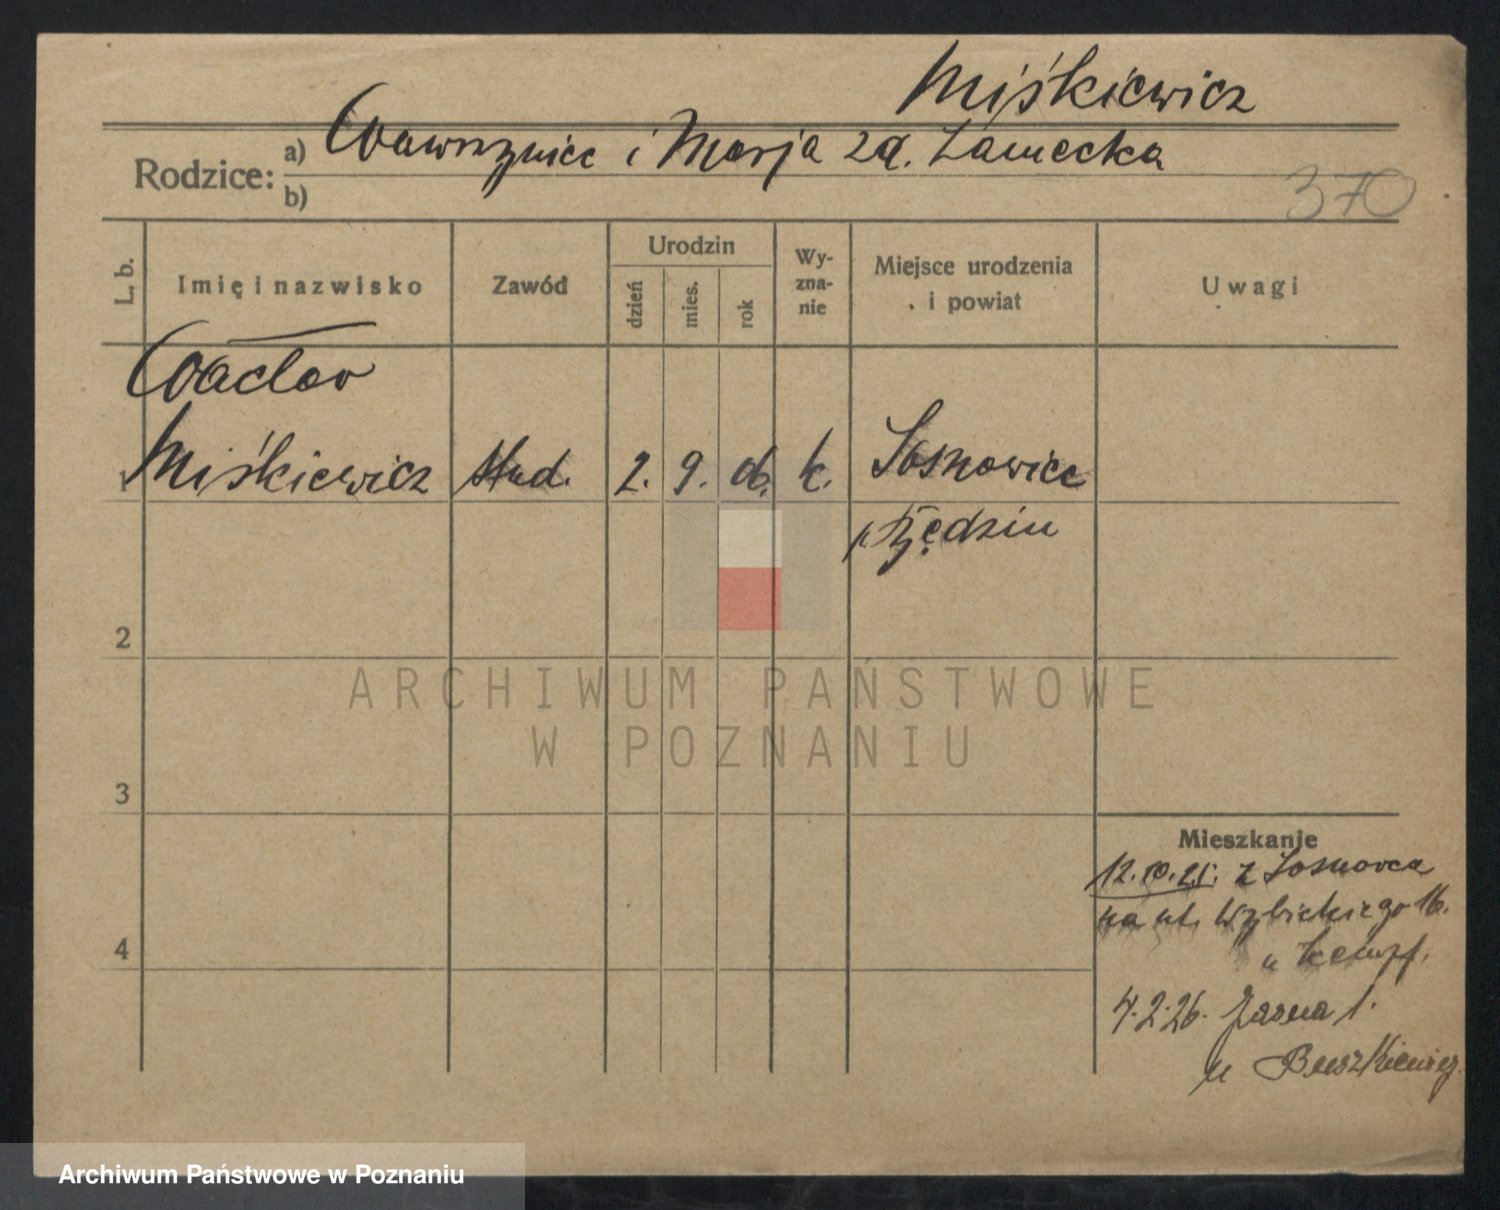 Miśkiewicz
Rodzice: a) Wawrzyniec i Marja zd.
b)
370
L. b. Imię i nazwisko Zawód Urodzin dzień mies. rok Wy-zna-nie Miejsce urodzenia i powiat Uwagi
Wacław
1 Miśkiewicz stud. 2. 9. k. Sosnowice
p. Będzin
2
3
4
Mieszkanie
12.10.25. z Sosnowca
na ul. Wybickiego 16.
u Kempf.
4.2.26. Jasna 1.
u Buszkiewicz
ARCHIWUM PAŃSTWOWE
W POZNANIU
Archiwum Państwowe w Poznaniu